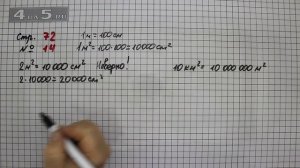 4 А 5 .ru
Стр. 72 1 м = 100 см
№ 14 1 м² = 100 · 100 = 10000 см²
2 м² = 10 000 см² Неверно! 10 км² = 10 000 000 м²
2 · 10000 = 20000 см²